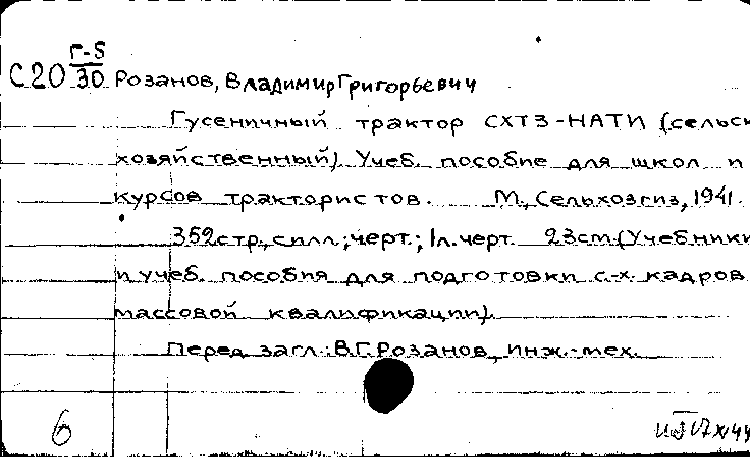 С20 Г-5/30 Розанов, Владимир Григорьевич
Гусеничный трактор СХТЗ-НАТИ (сельск
хозяйственный). Учеб. пособие для школ и
курсов трактористов. М., Сельхозгиз, 1941.
352стр., с илл.; черт.; 1л. черт. 23см. (Учебники
и учеб. пособия для подготовки с.-х. кадров
массовой квалификации).
Перед загл.: В.Г. Розанов, инж.-мех.
6